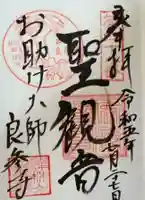 奉拝
令和五年
七月二十七日
聖観音
お助け大師
良参寺